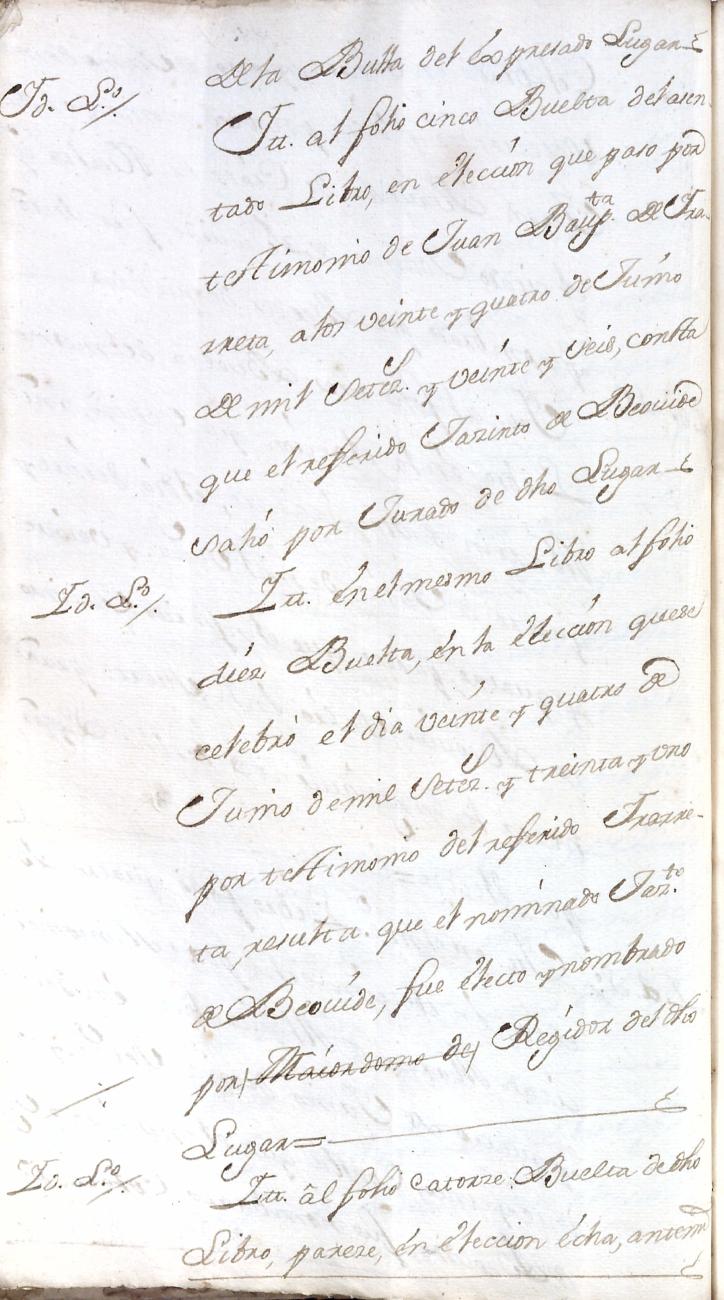 de la Bulla del éxpresado Lugar
Id. L.º/.
Itt. al folio cinco Buelta del asen-
tado Libro, en élección que paso por
testimonio de Juan Bapp.ta de Ira-
rreta, a los veinte y quatro de Junio
de mil Setez.s y veínte y seis, consta
que el refferido Jazinto de Beouide
salió por Jurado de dho Lugar
Id. L.º/.
Itt. én el mesmo Libro al folio
diéz Buelta, én la élección que se
celebró el dia veínte y quatro de
Junio de mil Setez.s y treinta y uno
por testimonio del refferido Irarre-
ta, resulta que el nominado Jaz.to
de Beouide, fue électo y nombrado
por Maiordomo de Regidor del dho
Lugar=
Id. L.º/.
Itt. al folio Catorze Buelta de dho
Libro, pareze, én élección écha, antemi